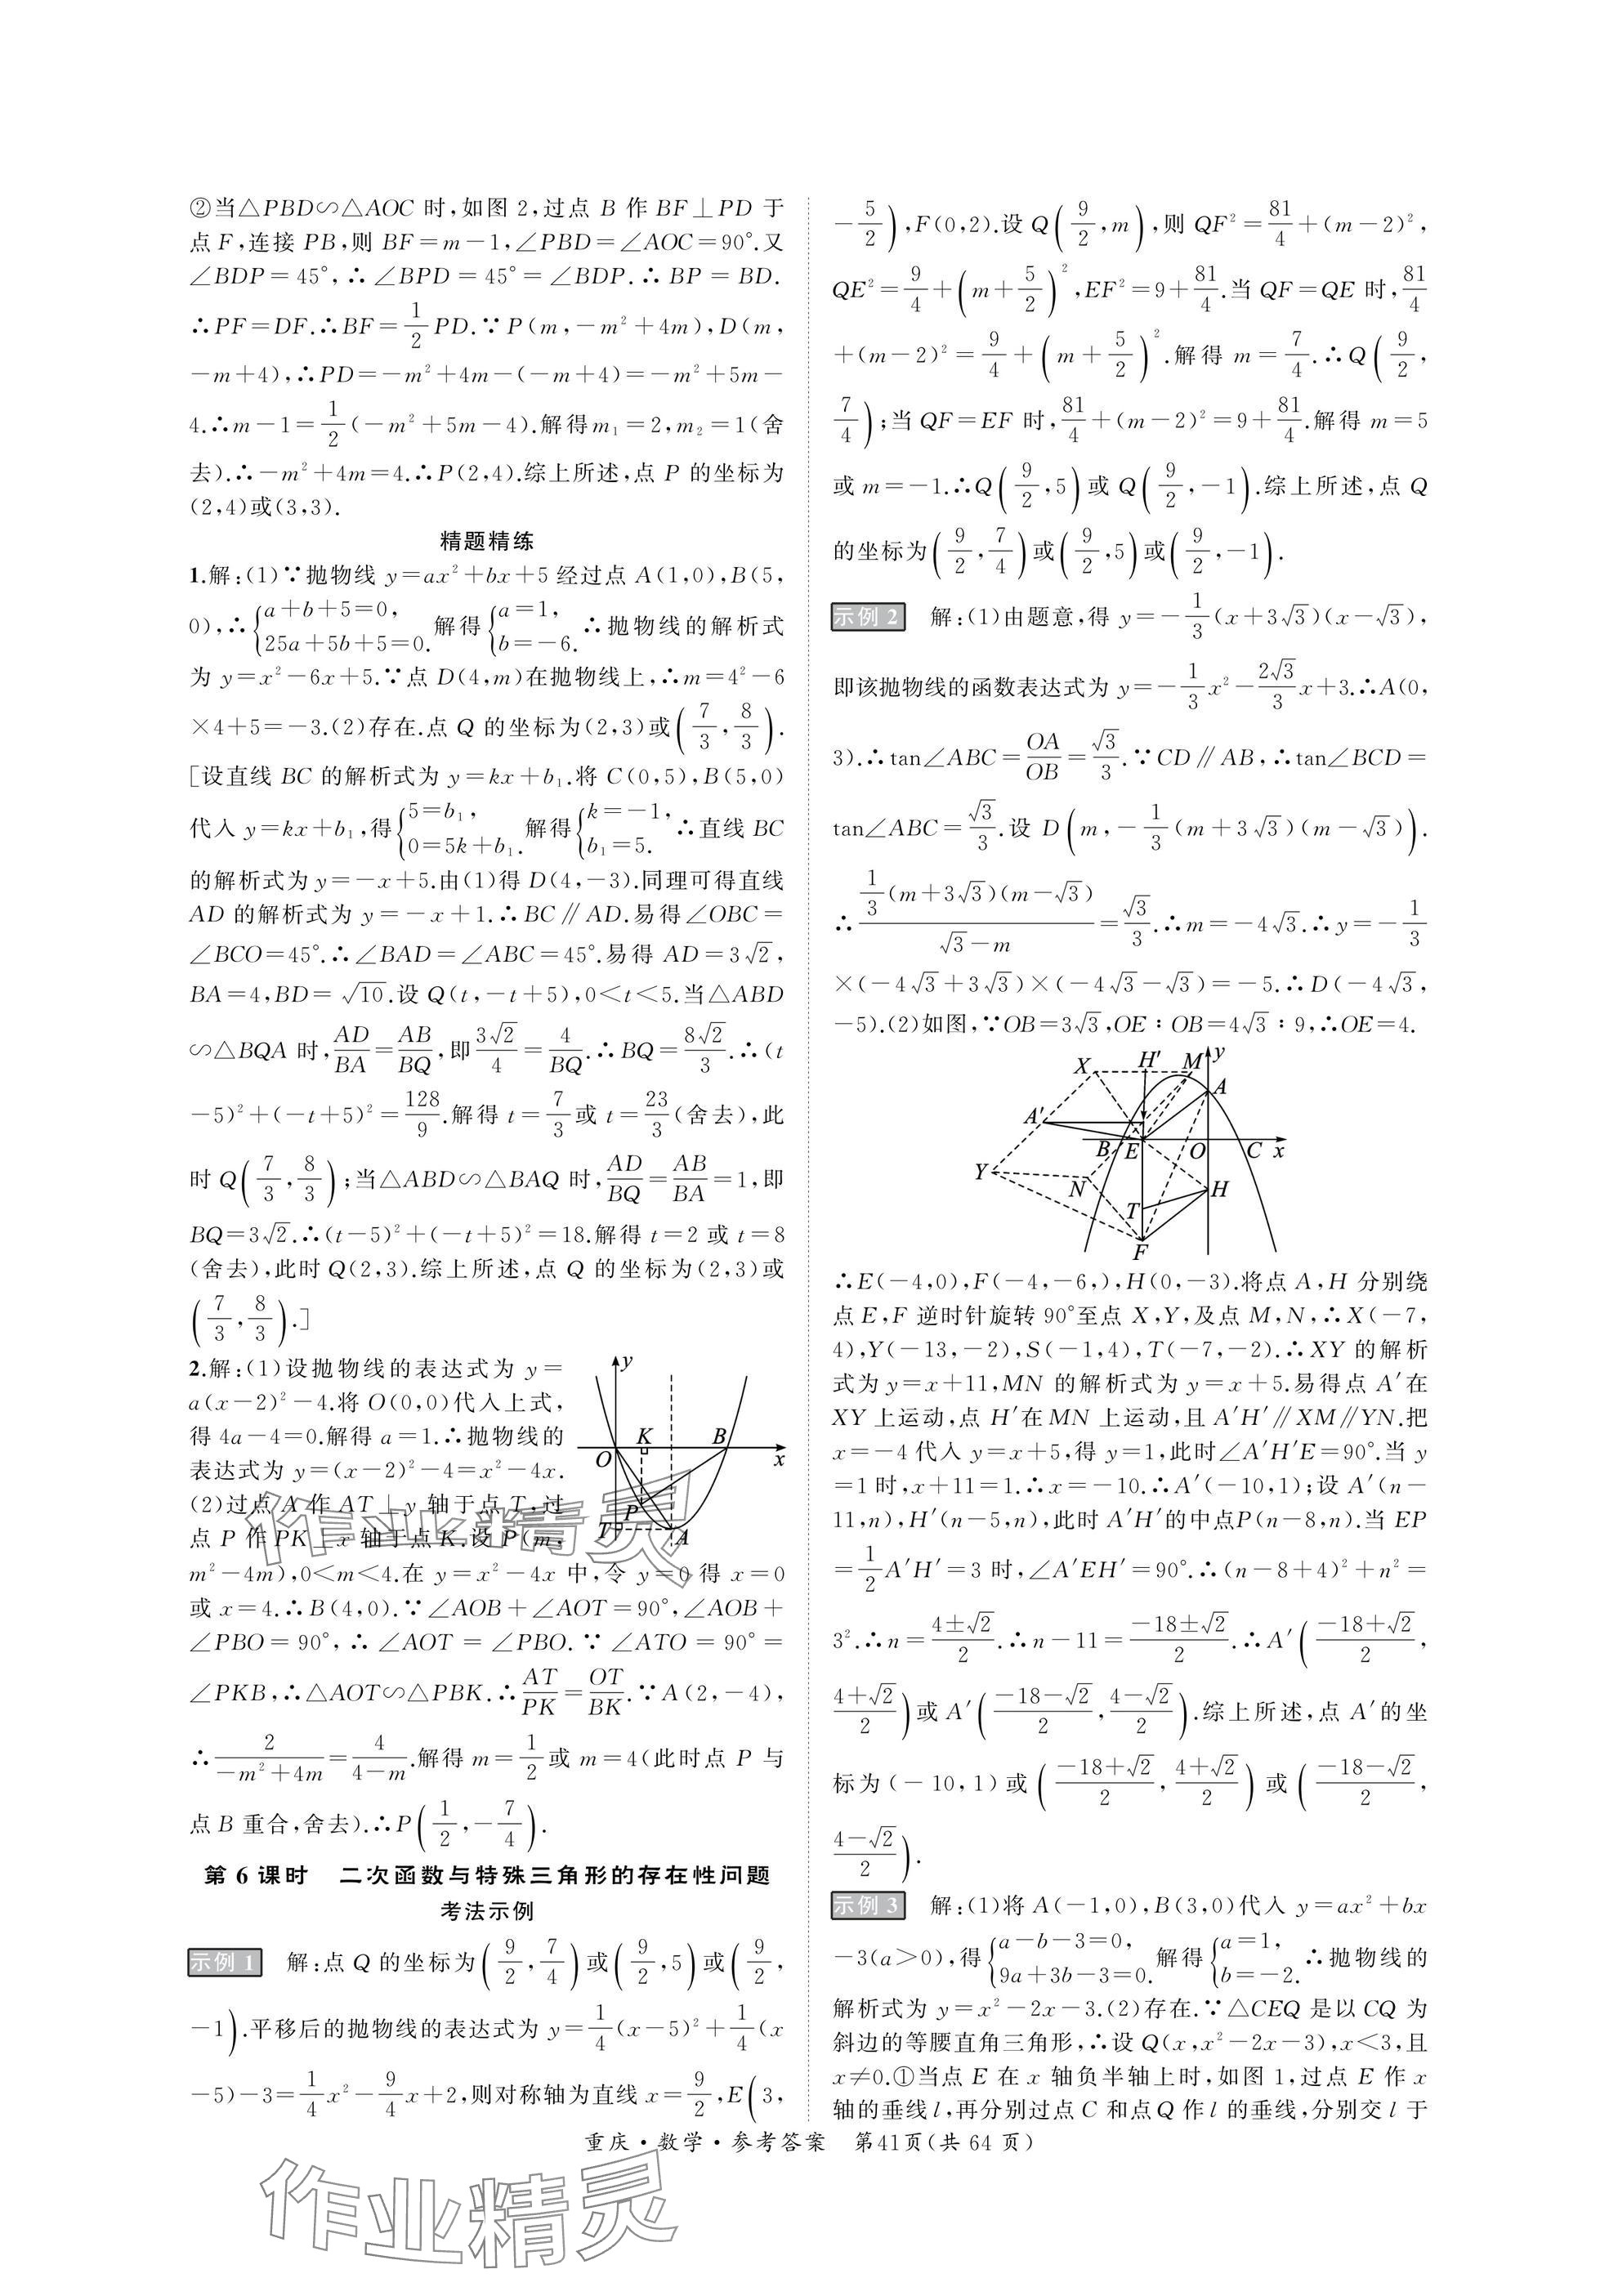 ②当△PBD∽△AOC 时,如图 2,过点 B 作 BF⊥PD 于
点 F,连接 PB,则 BF=m-1,∠PBD=∠AOC=90°.又
∠BDP=45°,∴∠BPD=45°=∠BDP.∴BP=BD.
∴PF=DF.∴BF=1/2 PD.∵P(m,-m²+4m),D(m,
-m+4),∴PD=-m²+4m-(-m+4)=-m²+5m-
4.∴m-1=1/2(-m²+5m-4).解得m₁=2,m₂=1(舍
去).∴-m²+4m=4.∴P(2,4).综上所述,点 P 的坐标为
(2,4)或(3,3).
精题精练
1.解:(1)∵抛物线 y=ax²+bx+5 经过点 A(1,0),B(5,
0),∴{a+b+5=0, 25a+5b+5=0. 解得{a=1, b=-6. ∴抛物线的解析式
为 y=x²-6x+5.∵点 D(4,m)在抛物线上,∴m=4²-6
×4+5=-3.(2)存在.点 Q 的坐标为(2,3)或(7/3,8/3).
[设直线 BC 的解析式为 y=kx+b₁.将 C(0,5),B(5,0)
代入 y=kx+b₁,得{5=b₁, 0=5k+b₁. 解得{k=-1, b₁=5. ∴直线 BC
的解析式为y=-x+5.由(1)得 D(4,-3).同理可得直线
AD 的解析式为 y=-x+1.∴BC∥AD.易得∠OBC=
∠BCO=45°.∴∠BAD=∠ABC=45°.易得 AD=3√2,
BA=4,BD=√10.设 Q(t,-t+5),0<t<5.当△ABD
∽△BQA 时,AD/BA=AB/BQ,即3√2/4=4/BQ.∴BQ=8√2/3.∴(t
-5)²+(-t+5)²=128/9.解得 t=7/3或 t=23/3(舍去),此
时 Q(7/3,8/3);当△ABD∽△BAQ 时,AD/BQ=AB/BA=1,即
BQ=3√2.∴(t-5)²+(-t+5)²=18.解得 t=2 或 t=8
(舍去),此时 Q(2,3).综上所述,点 Q 的坐标为(2,3)或
(7/3,8/3).]
2.解:(1)设抛物线的表达式为 y=
a(x-2)²-4.将 O(0,0)代入上式,
得 4a-4=0.解得 a=1.∴抛物线的
表达式为 y=(x-2)²-4=x²-4x.
(2)过点 A 作 AT⊥y 轴于点 T,过
点 P 作 PK⊥x 轴于点 K.设 P(m,
y
K
B
O
x
P
T
A
m²-4m),0<m<4.在 y=x²-4x 中,令 y=0 得 x=0
或 x=4.∴B(4,0).∵∠AOB+∠AOT=90°,∠AOB+
∠PBO=90°,∴∠AOT=∠PBO.∵∠ATO=90°=
∠PKB,∴△AOT∽△PBK.∴AT/PK=OT/BK.∵A(2,-4),
∴2/(-m²+4m)=4/(4-m).解得 m=1/2或 m=4(此时点 P 与
点 B 重合,舍去).∴P(1/2,-7/4).
第 6 课时 二次函数与特殊三角形的存在性问题
考法示例
示例 1 解:点 Q 的坐标为(9/2,7/4)或(9/2,5)或(9/2,
-1).平移后的抛物线的表达式为 y=1/4(x-5)²+1/4(x
-5)-3=1/4x²-9/4x+2,则对称轴为直线 x=9/2,E(3,
-5/2),F(0,2).设 Q(9/2,m),则 QF²=81/4+(m-2)²,
QE²=9/4+(m+5/2)²,EF²=9+81/4.当 QF=QE 时,81/4
+(m-2)²=9/4+(m+5/2)².解得 m=7/4.∴Q(9/2,
7/4);当 QF=EF 时,81/4+(m-2)²=9+81/4.解得 m=5
或 m=-1.∴Q(9/2,5)或 Q(9/2,-1).综上所述,点 Q
的坐标为(9/2,7/4)或(9/2,5)或(9/2,-1).
示例 2 解:(1)由题意,得 y=-1/3(x+3√3)(x-√3),
即该抛物线的函数表达式为 y=-1/3x²-2√3/3x+3.∴A(0,
3).∴tan∠ABC=OA/OB=√3/3.∵CD∥AB,∴tan∠BCD=
tan∠ABC=√3/3.设 D(m,-1/3(m+3√3)(m-√3)).
∴1/3(m+3√3)(m-√3)/(√3-m)=√3/3.∴m=-4√3.∴y=-1/3
×(-4√3+3√3)×(-4√3-√3)=-5.∴D(-4√3,
-5).(2)如图,∵OB=3√3,OE∶OB=4√3∶9,∴OE=4.
X
H′
M
y
A
A′
B
E
O
C
x
Y
N
H
T
F
∴E(-4,0),F(-4,-6,),H(0,-3).将点 A,H 分别绕
点 E,F 逆时针旋转 90°至点 X,Y,及点 M,N,∴X(-7,
4),Y(-13,-2),S(-1,4),T(-7,-2).∴XY 的解析
式为 y=x+11,MN 的解析式为 y=x+5.易得点 A′在
XY 上运动,点 H′在 MN 上运动,且 A′H′∥XM∥YN.把
x=-4 代入 y=x+5,得 y=1,此时∠A′H′E=90°.当 y
=1 时,x+11=1.∴x=-10.∴A′(-10,1);设 A′(n-
11,n),H′(n-5,n),此时 A′H′的中点P(n-8,n).当 EP
=1/2A′H′=3 时,∠A′EH′=90°.∴(n-8+4)²+n²=
3².∴n=(4±√2)/2.∴n-11=(-18±√2)/2.∴A′((-18+√2)/2,
(4+√2)/2)或 A′((-18-√2)/2,(4-√2)/2).综上所述,点 A′的坐
标为(-10,1)或((-18+√2)/2,(4+√2)/2)或((-18-√2)/2,
(4-√2)/2).
示例 3 解:(1)将 A(-1,0),B(3,0)代入 y=ax²+bx
-3(a>0),得{a-b-3=0, 9a+3b-3=0. 解得{a=1, b=-2. ∴抛物线的
解析式为 y=x²-2x-3.(2)存在.∵△CEQ 是以 CQ 为
斜边的等腰直角三角形,∴设 Q(x,x²-2x-3),x<3,且
x≠0.①当点 E 在 x 轴负半轴上时,如图 1,过点 E 作 x
轴的垂线 l,再分别过点 C 和点 Q 作 l 的垂线,分别交 l 于
重庆·数学·参考答案 第41页(共 64 页)
作业精灵
作业精灵